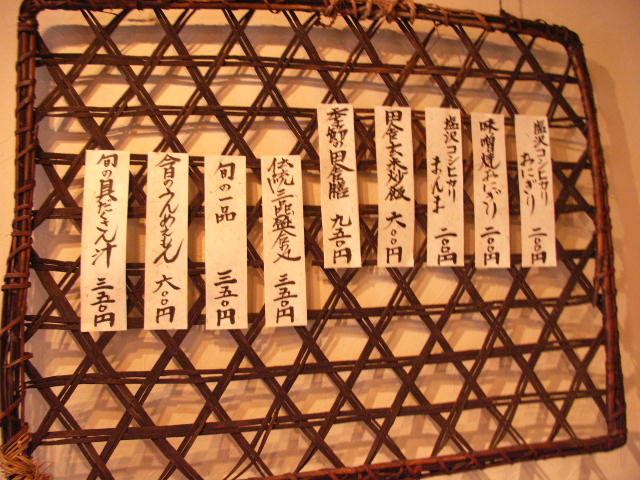 塩沢コシヒカリ
おにぎり 二〇〇円
味噌焼おにぎり 二〇〇円
塩沢コシヒカリ
まんま 二〇〇円
田舎玄米炒飯 六〇〇円
季節の田舎膳 九五〇円
伝統三匹盛合せ 三五〇円
旬の一品 三五〇円
今日のうんめぇもん 六〇〇円
旬の具だくさん汁 三五〇円